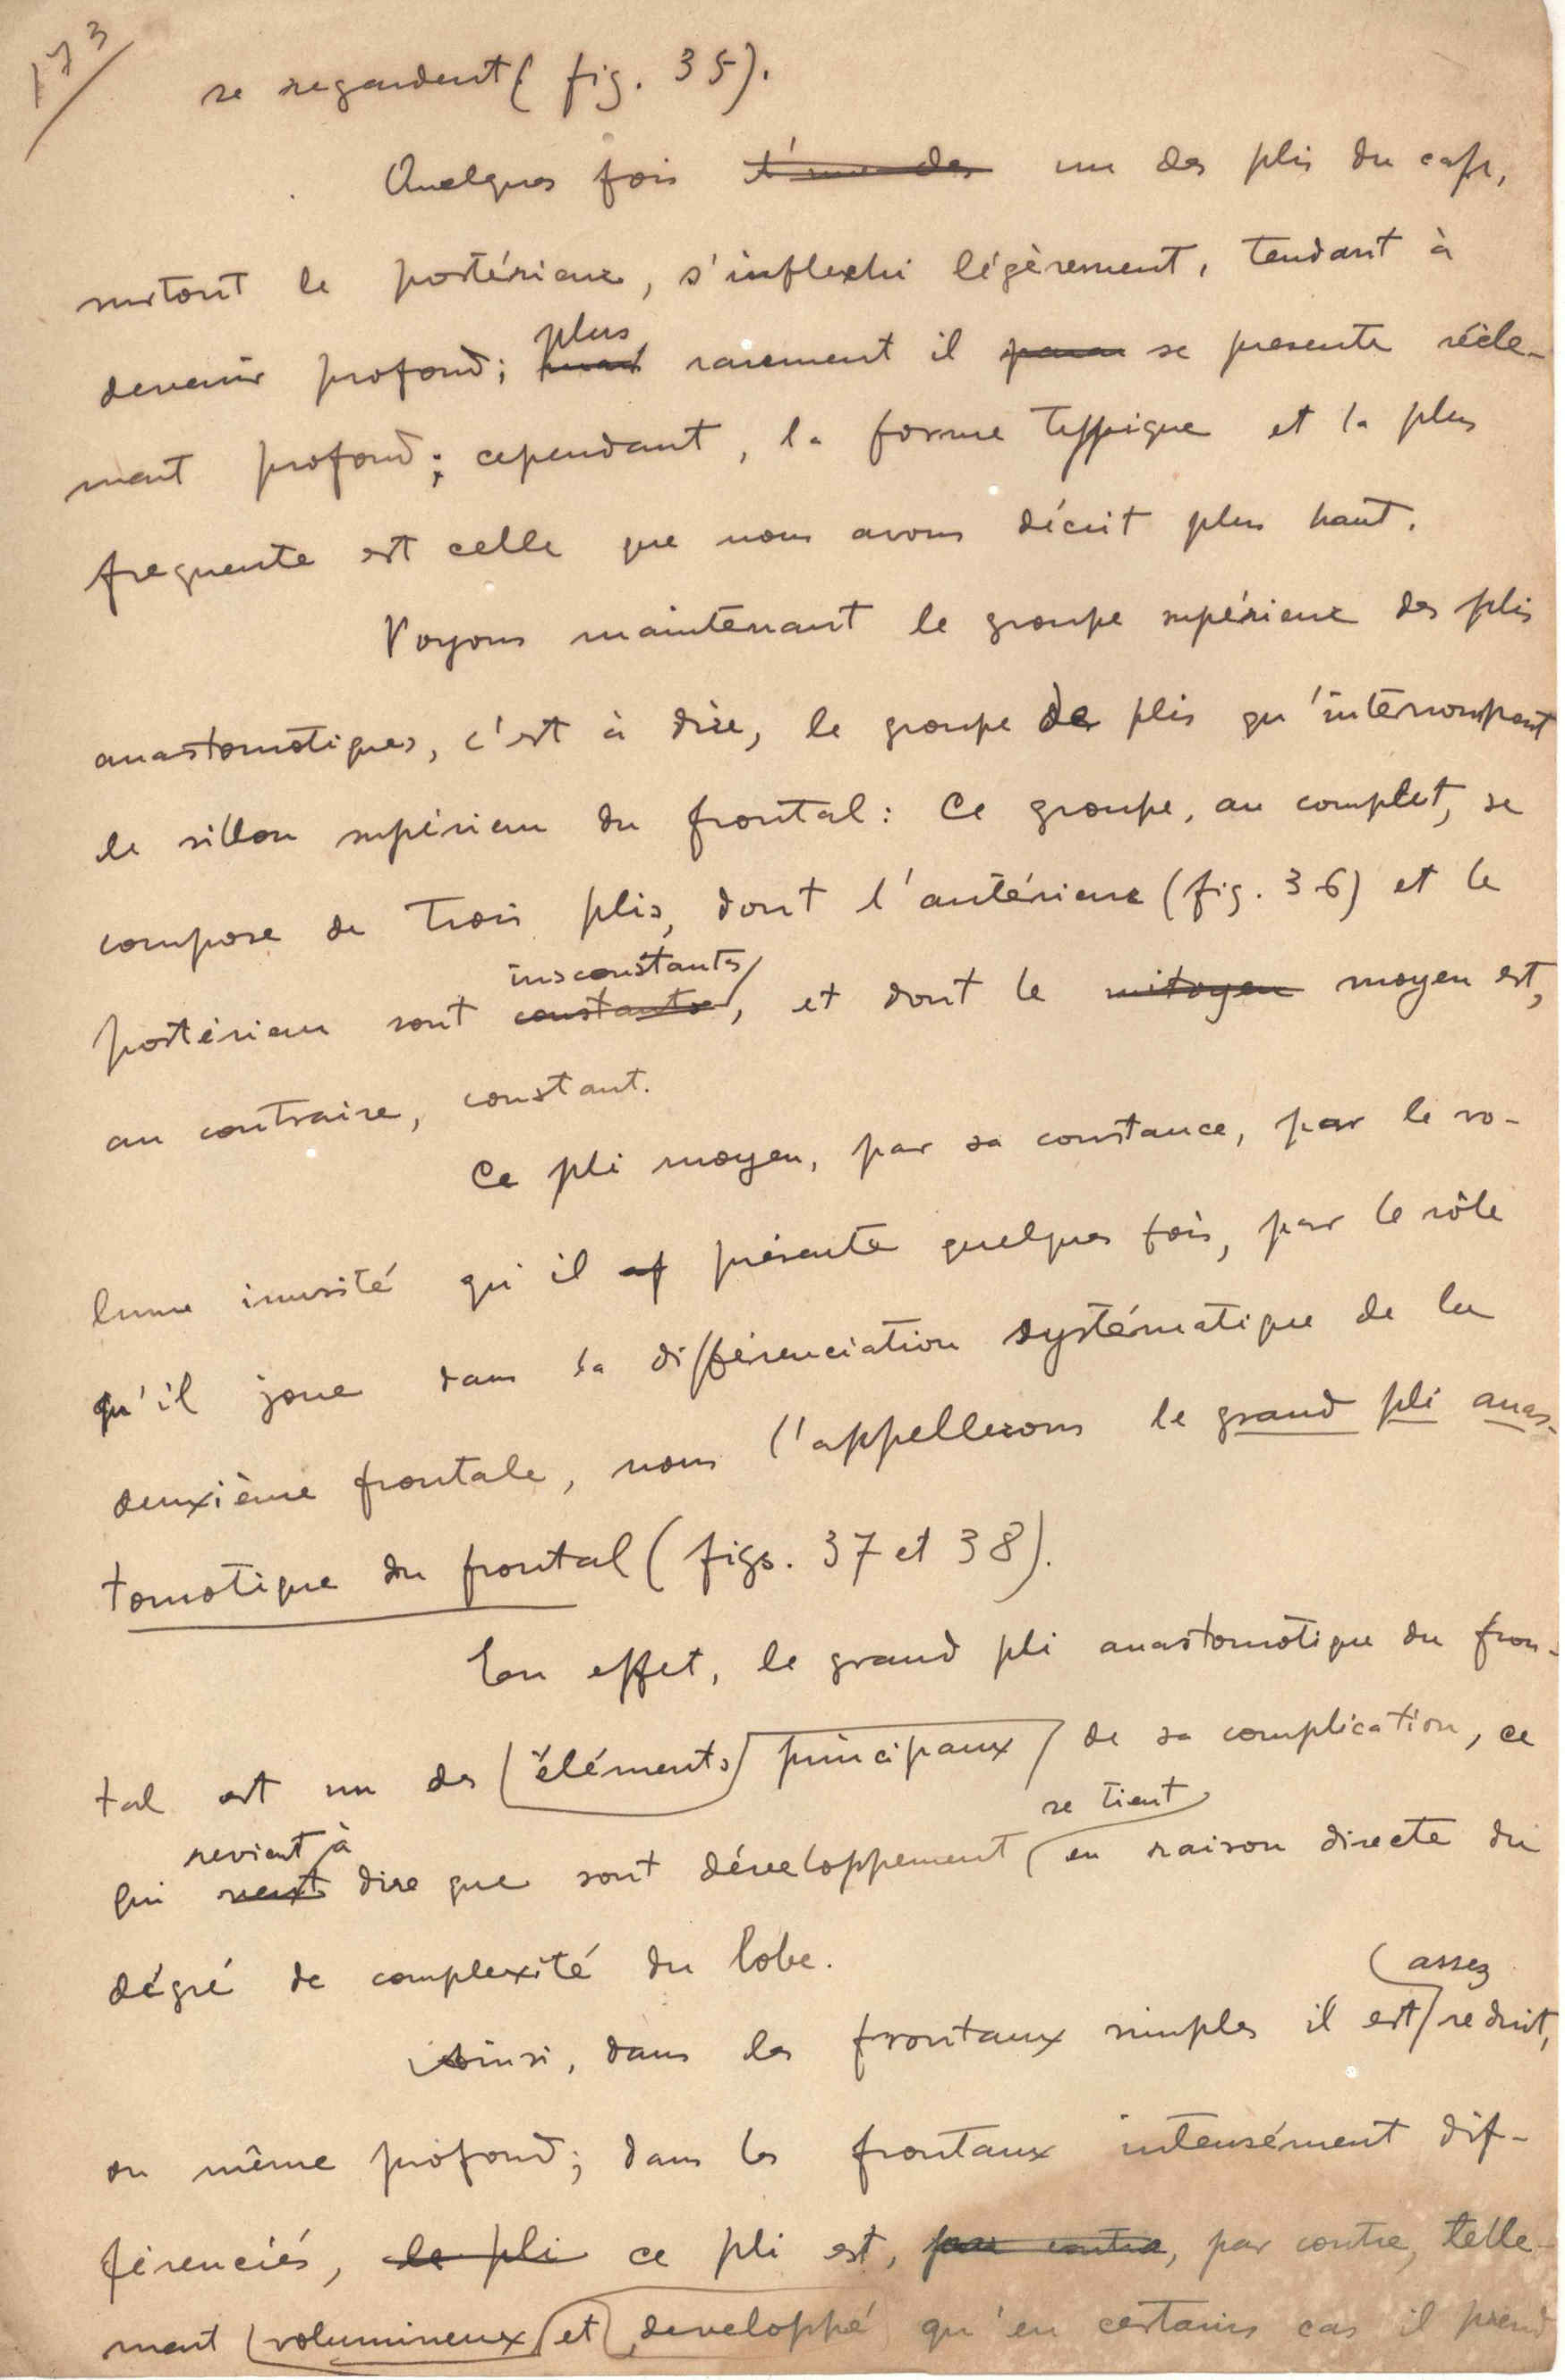 173
se regardent (fig. 35).
Quelques fois l'une des un des plis du cap,
surtout le postérieur, s'inflechi légèrement, tendant à
plus
devenir profond; rarement il se presente réele-
ment profond; cependant, la forme typpique et la plus
frequente est celle que nous avons décrit plus haut.
Voyons maintenant le groupe supérieur des plis
anastomotiques, c'est à dire, le groupe de plis qu'interrompent
le sillon supérieur du frontal: Ce groupe, au complet, se
compose de trois plis, dont l'antérieur (fig. 36) et le
insconstants
postérieur sont constants, et dont le mitoyen moyen est,
au contraire, constant.
Ce pli moyen, par sa constance, par le vo-
lume inusité qu'il présente quelques fois, par le rôle
qu'il joue dans la différenciation systématique de la
deuxième frontale, nous l'appellerons le grand pli anas-
tomotique du frontal (figs. 37 et 38).
En effet, le grand pli anastomotique du fron-
tal est un des éléments principaux de sa complication, ce
se tient
revient à
qui veut dire que sont développement en raison directe du
dégré de complexité du lobe.
assez
Ainsi, dans les frontaux simples il est reduit,
ou même profond; dans les frontaux intensément dif-
férenciés, le pli ce pli est, par contre, par contre, telle-
ment volumineux et developpé qu'en certains cas il prend